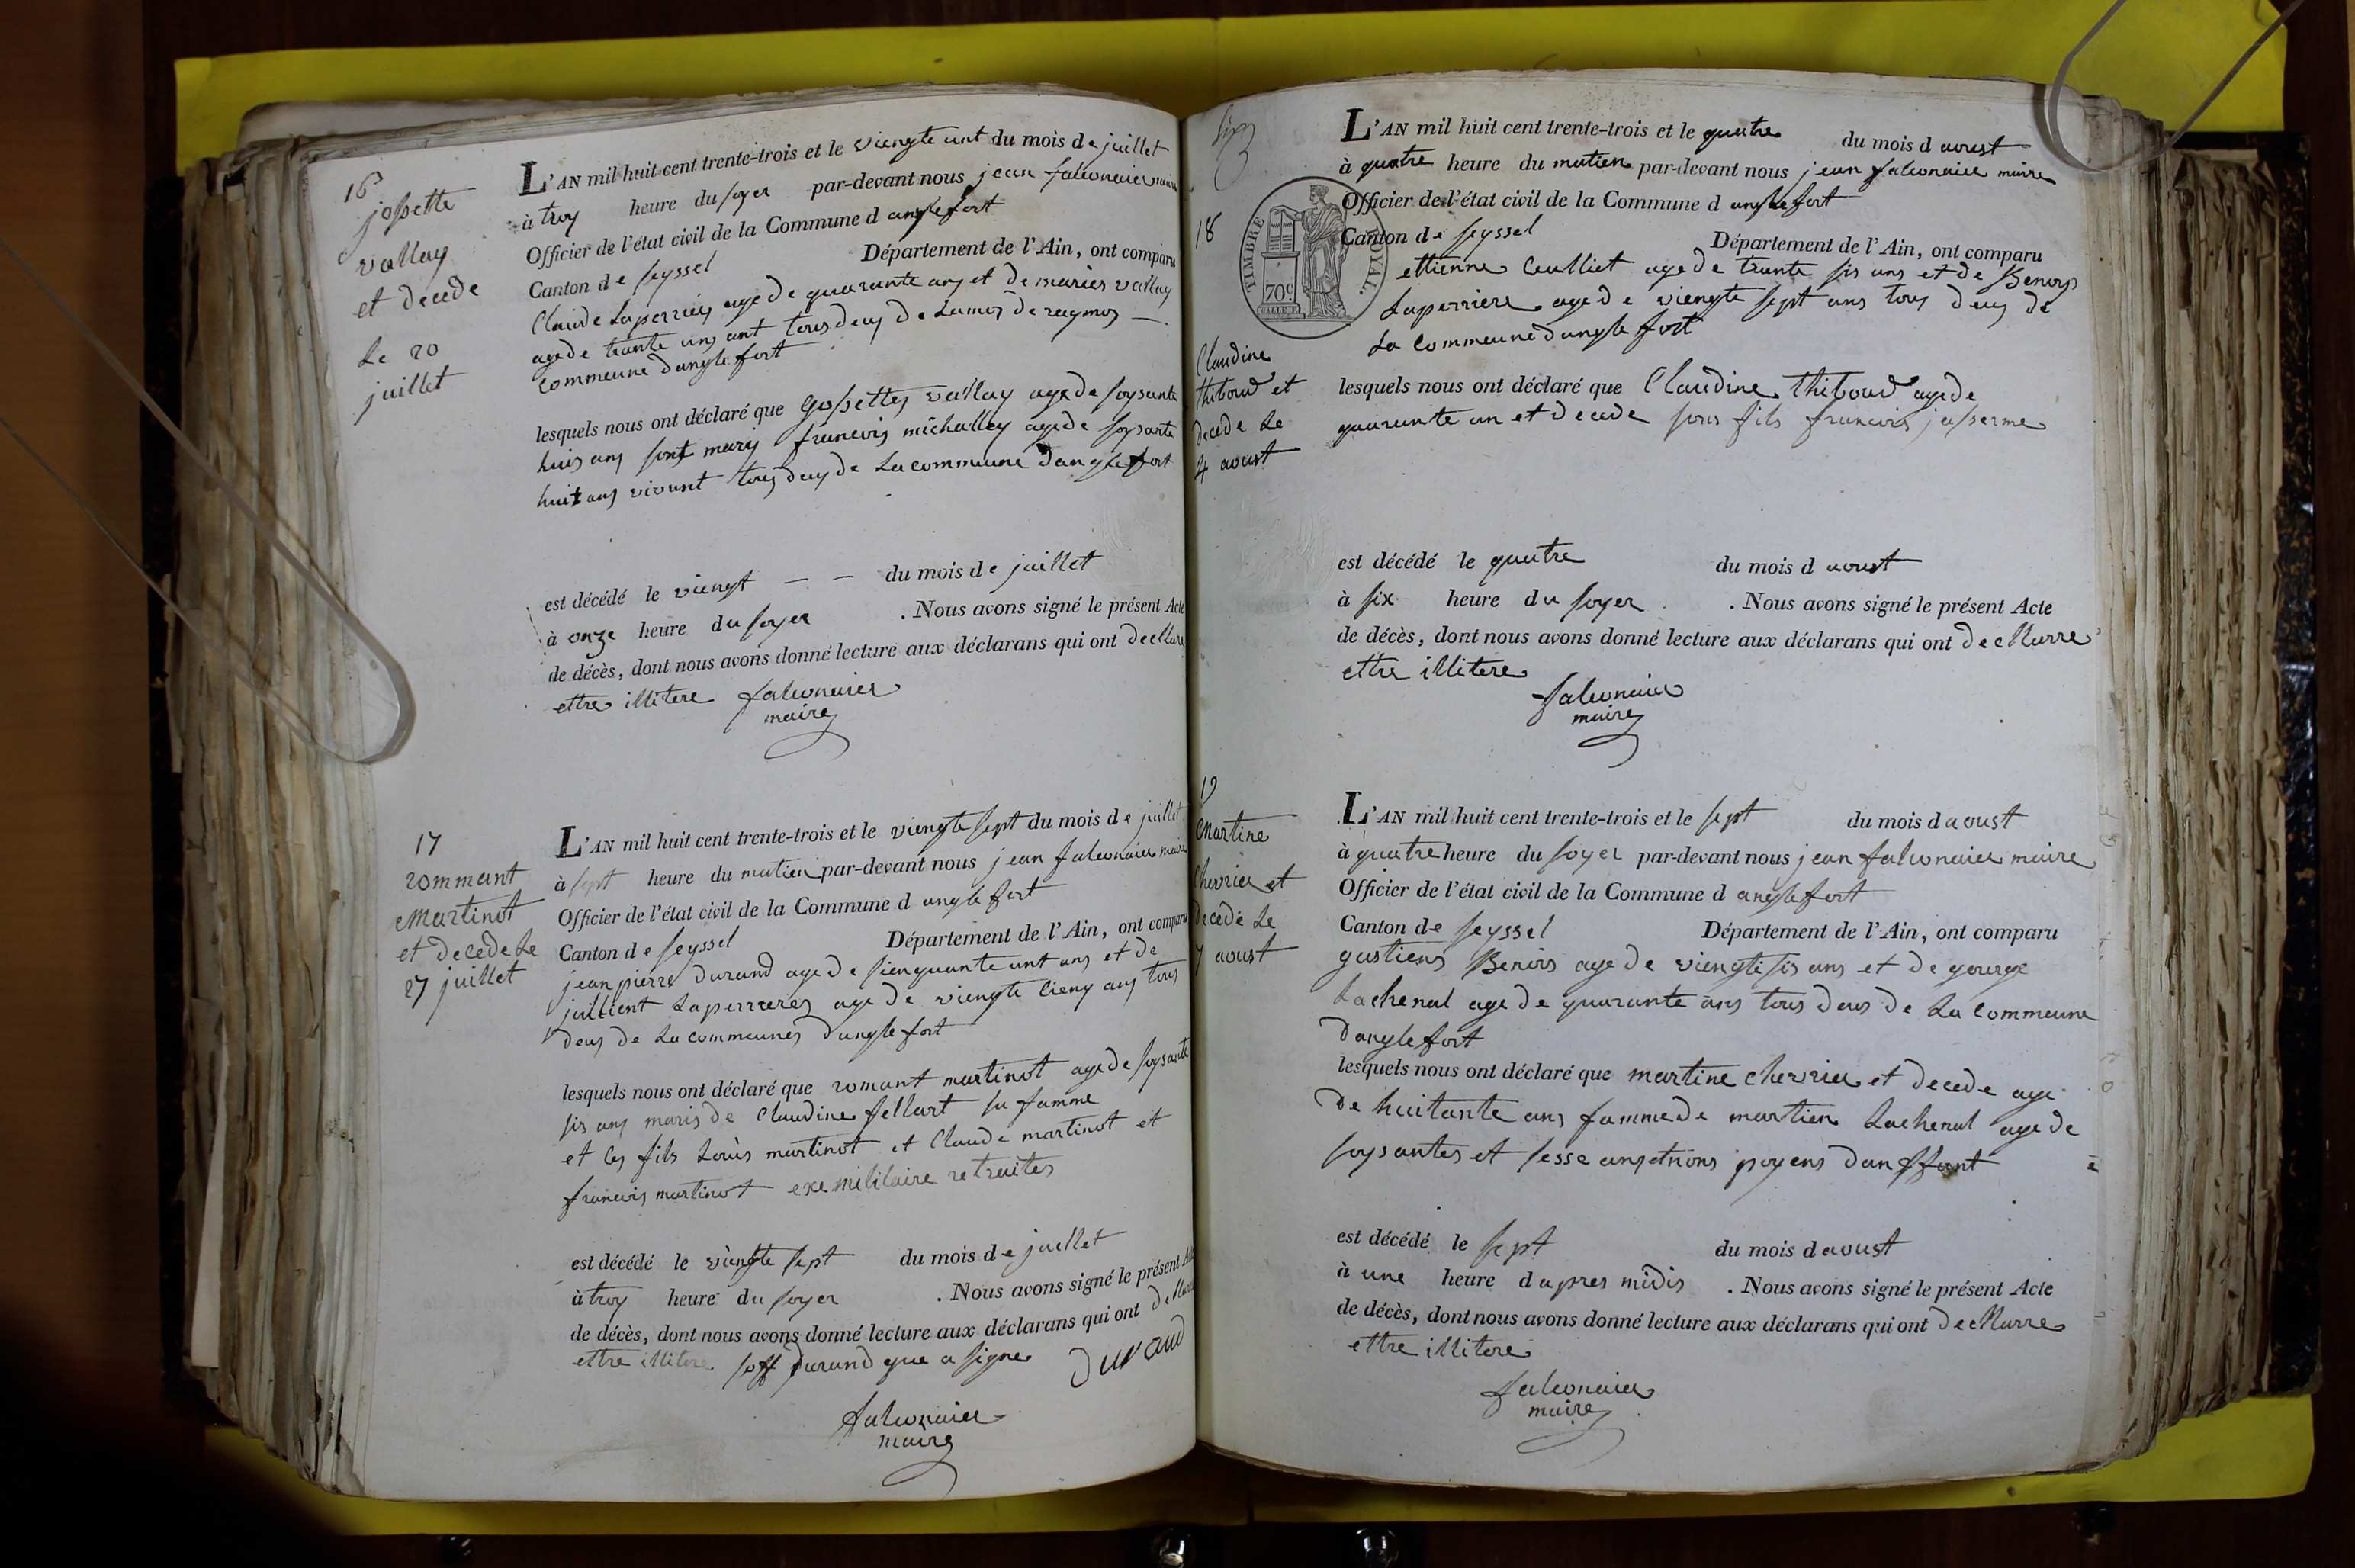 16
jossette
vallay
et decede
le 20
juillet
L'AN mil huit cent trente-trois et le viengte unt du mois de juillet
à troy heure du soyer par-devant nous jean falconaier maire
Officier de l'état civil de la Commune d anglefort
Canton de seyssel Département de l'Ain, ont comparu
Claude Laperriey age de quarante ans et de maries vallay
age de trante ung ant tous deus de Lamos de raymos —
commeune danglefort
lesquels nous ont déclaré que gossettes vallay age de soysante
huis ans sont marÿ francois michalley age de soysante
huit ans vivant tous deus de La commeune danglefort
est décédé le viengt — — du mois de juillet
à onze heure du soyer . Nous avons signé le présent Acte
de décès, dont nous avons donné lecture aux déclarans qui ont decllare
ettre illitere falconaier
maire
17
rommant
martinot
et decede Le
27 juillet
L'AN mil huit cent trente-trois et le viengte sept du mois de juillet
à sept heure du matien par-devant nous jean falconaier maire
Officier de l'état civil de la Commune d anglefort
Canton de seyssel Département de l'Ain, ont comparu
jean pierre durand age de sienquante unt ans et de
jullient Laperrieres age de viengte cieng ans tous
deus de La commeunes danglefort
lesquels nous ont déclaré que romant martinot age de soysante
sis ans maris de Claudine fellart sa famme
et ces fils Louis martinot et Claude martinot et
francois martinot exe mililaire retraites
est décédé le viengte sept du mois de juillet
à troy heure du soyer . Nous avons signé le présent Acte
de décès, dont nous avons donné lecture aux déclarans qui ont decllare
ettre illitere soff durand que a signe durand
falconaier
maire
18
TIMBRE ROYAL.
70c
Claudine
thiboud et
decede Le
4 aoust
L'AN mil huit cent trente-trois et le quatre du mois d aoust
à quatre heure du matien par-devant nous jean falconaier maire
Officier de l'état civil de la Commune d anglefort
Canton de seyssel Département de l'Ain, ont comparu
ettienne Culliet age de trante sis ans et de Benoys
Laperriere age de viengte sept ans tous deus de
La commeune danglefort
lesquels nous ont déclaré que Claudine thiboud age de
quarante an et decede sons fils francois jasserme
est décédé le quatre du mois d aoust
à six heure du soyer . Nous avons signé le présent Acte
de décès, dont nous avons donné lecture aux déclarans qui ont decllarre
ettre illitere
falconaier
maire
19
martine
chevrier et
decede Le
7 aoust
L'AN mil huit cent trente-trois et le sept du mois d aoust
à quatre heure du soyer par-devant nous jean falconaier maire
Officier de l'état civil de la Commune d anglefort
Canton de seyssel Département de l'Ain, ont comparu
gustiens Benois age de viengte sis ans et de gourge
Lachenal age de quarante ans tous deus de La commeune
danglefort
lesquels nous ont déclaré que martine chevrier et decede age
de huitante ans famme de martien Lachenal age de
soysantes et sesse ans etnons poyens danffant
est décédé le sept du mois d aoust
à une heure d apres midis . Nous avons signé le présent Acte
de décès, dont nous avons donné lecture aux déclarans qui ont decllarre
ettre illitere
falconaier
maire